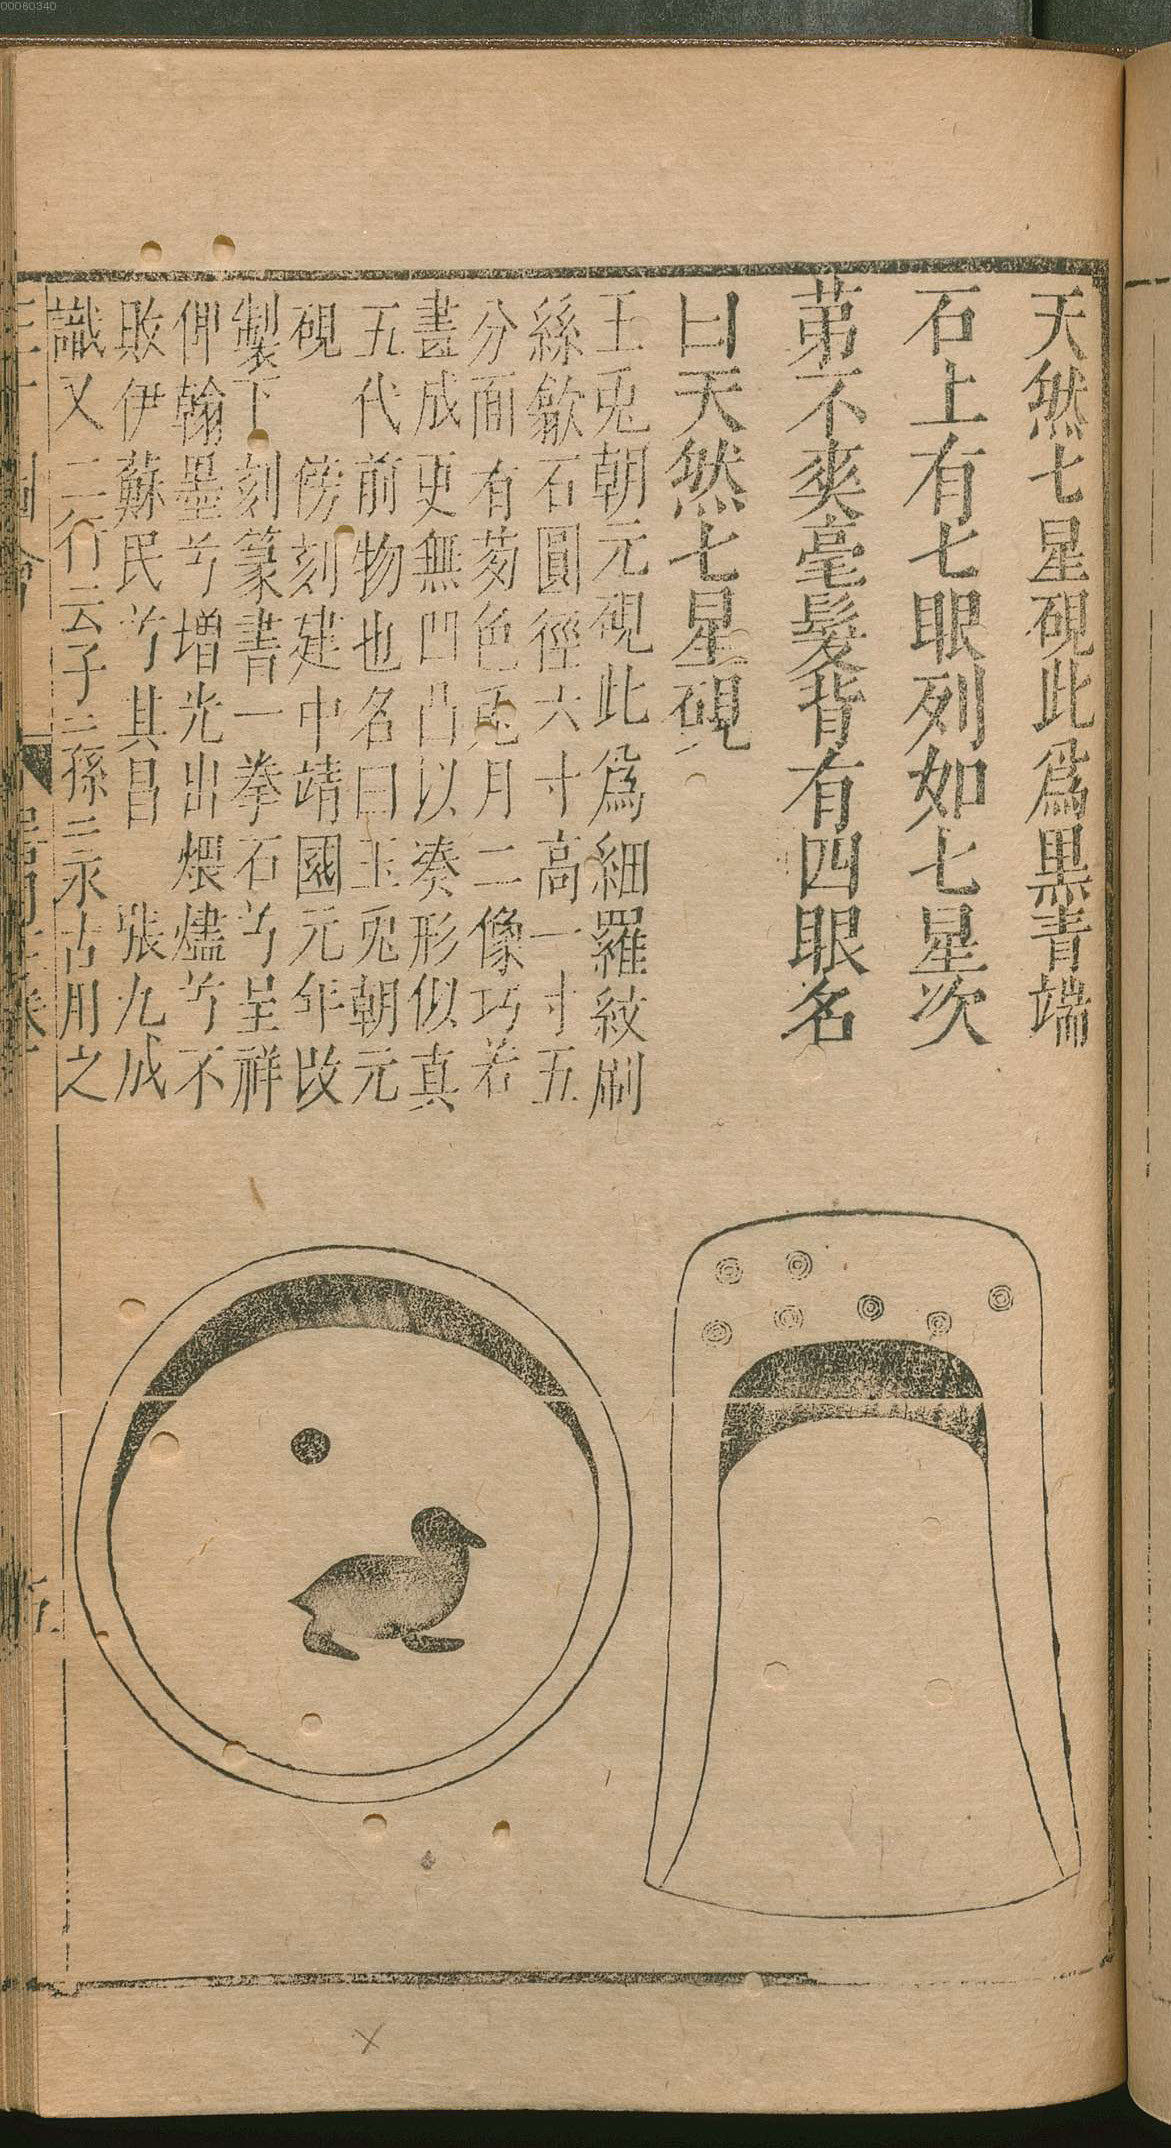 00060340
天然七星硯此爲黑青端
石上有七眼列如七星次
苐不夾毫髮背有四眼名
曰天然七星硯
玉兎朝元硯此爲細羅紋刷
絲歙石圓徑六寸高一寸五
分面有菊色兎月二像巧若
畫成更無凹凸以凑形似真
五代前物也名曰玉兎朝元
硯傍刻建中靖國元年改
製下刻篆書一拳石兮呈祥
俾翰墨兮增光出煨燼兮不
敗伊蘇民兮其昌 張九成
識又二行云子二孫二永古用之